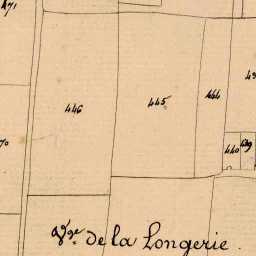 471
446
445
444
43
440
439
70
V.ge de la Longerie.